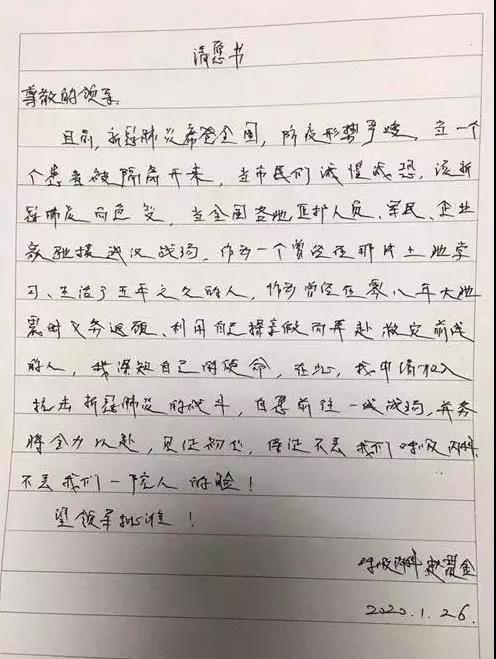 请愿书
尊敬的领导:
目前,新冠肺炎席卷全国,防疫形势严峻,当一个
个患者被隔离开来,当市民们诚惶诚恐,谈新
冠肺炎而色变,当全国各地医护人员、军民、企业
驰援武汉战场,作为一个曾经在那片土地学
习、生活了五年之久的人,作为曾经在零八年大地
震时义务返颐、利用自己探亲假而奔赴救灾前线
的人,我深知自己的使命,在此,我申请加入
抗击新冠肺炎的战斗,自愿前往一线战场,并务
将全力以赴,见证初心,保证不丢我们呼吸内科
不丢我们一院人的脸!
望领导批准!
呼吸内科
2020.1.26.